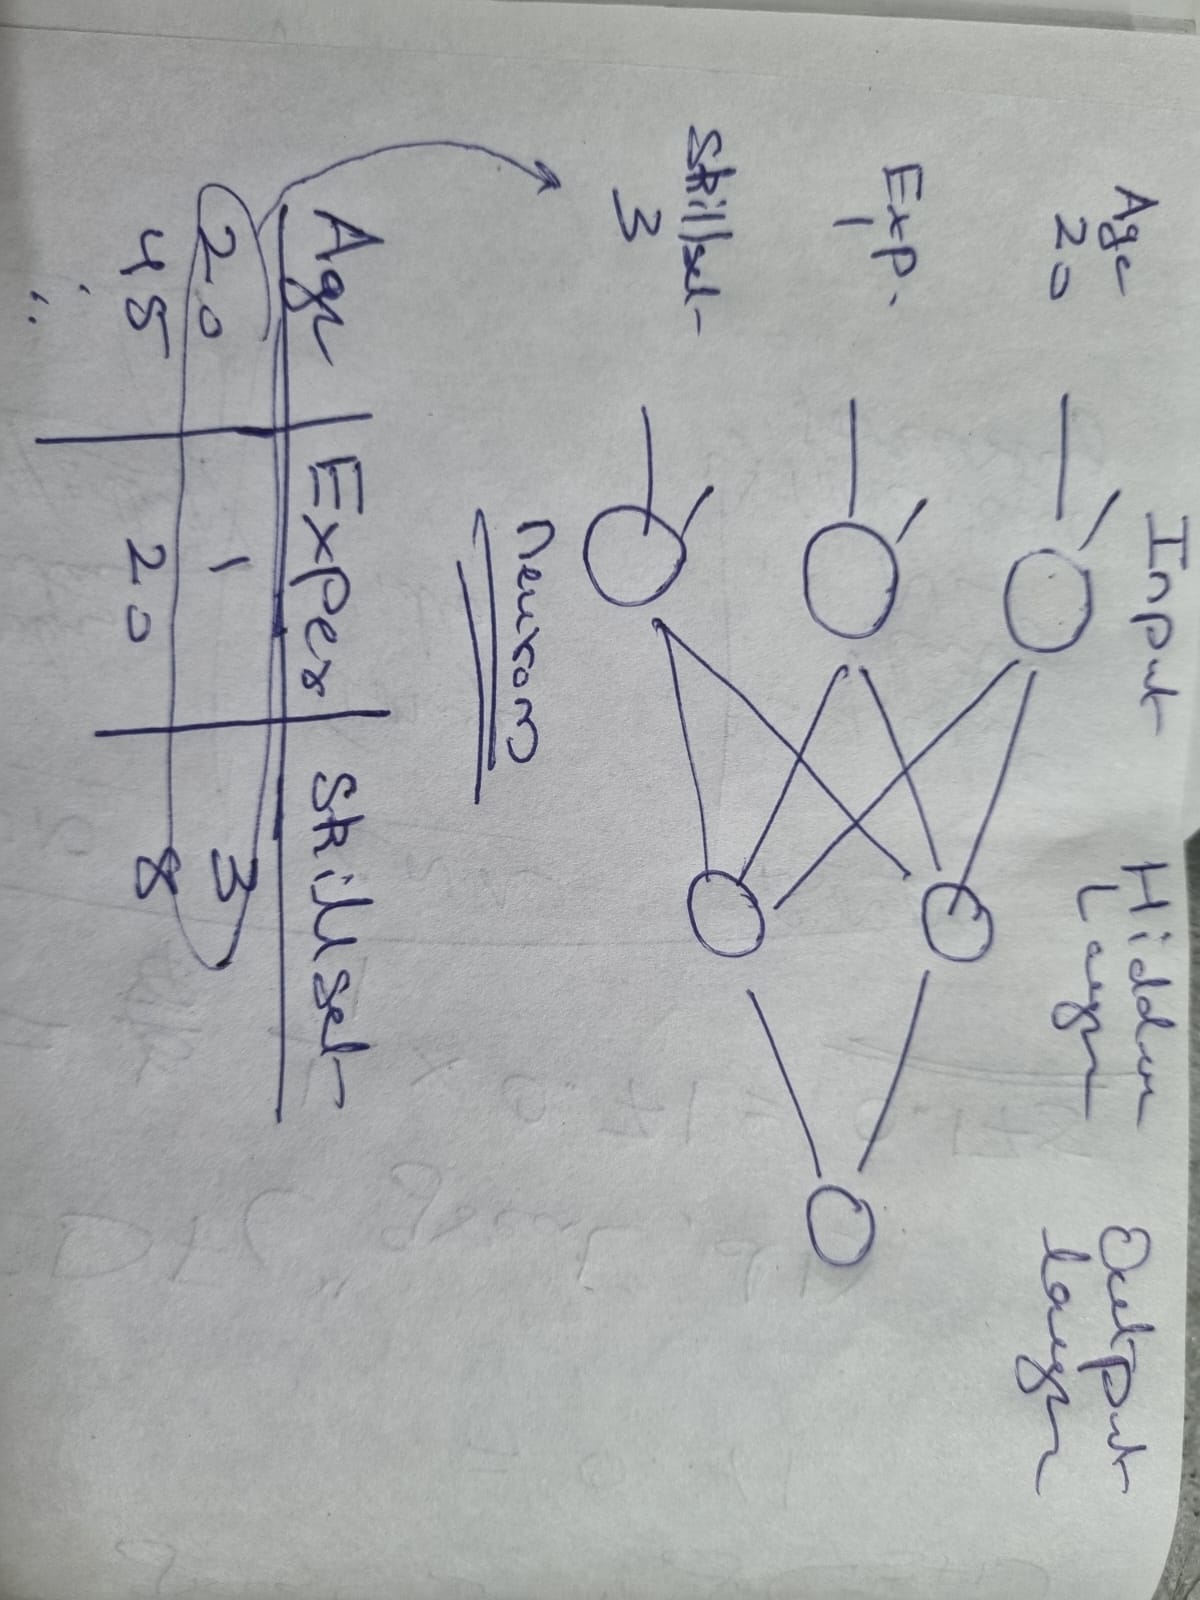 Input Hidden Output
Layer layer
Age
20
Exp.
1
Skillset
3
neurons
Age Exper Skillset
20 1 3
45 20 8